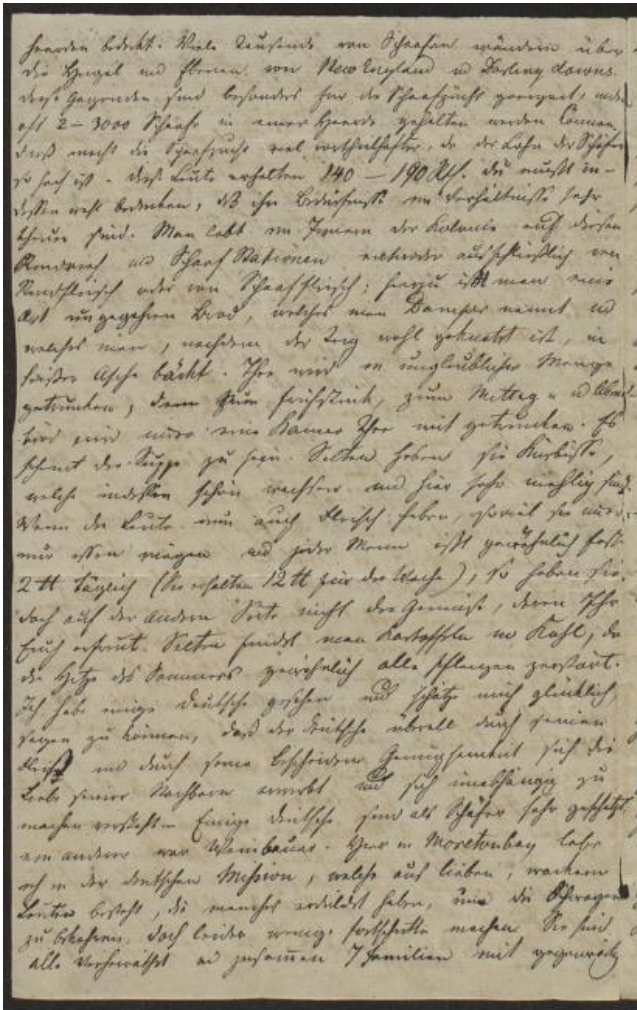 heerden bedeckt. Viele Tausende von Schaafen wandern über
die Hügel und Ebenen von New England u Darling downs.
diese Gegenden sind besonders für die Schaafzucht geeignet, indem
oft 2–3000 Schaafe in einer Heerde gehalten werden können.
dieß macht die Schaafzucht viel vortheilhafter, da der Lohn der Schäfer
so hoch ist. diese Leute erhalten 140–190 Rth. du mußt in-
dessen wohl bedenken, daß ihre Bedürfnisse im Verhältnisse sehr
theuer sind. Man lebt im Innern der Kolonie auf diesen
Rindvieh und Schaaf Stationen entweder ausschließlich von
Rindfleisch oder von Schaaffleisch; hierzu ißt man eine
Art ungegohren Brod, welches man Damper nennt und
welches man, nachdem der Teig wohl geknetet ist, in
heißer Asche bäckt. Thee wird in unglaublicher Menge
getrunken, denn zum Frühstück, zum Mittag u Abend
wird eine Thee mit getrunken. Es
scheint die Suppe zu sein. Selten haben sie Kürbisse,
welche indessen schön wachsen und hier sehr mehlig sind.
Wenn die Leute nun auch Fleisch haben, soviel sie nur
nur essen mögen und jeder Mann ißt gewöhnlich fast
2 ℔ täglich (Sie erhalten 12 ℔ für die Woche), so haben sie
doch auf der andern Seite nicht die Gemüse, deren Ihr
Euch erfreut. Selten findet man Kartoffeln u Kohl, da
die Hitze des Sommers gewöhnlich alle Pflanzen zerstört.
Ich habe einige Deutsche gesehen und schätze mich glücklich
sagen zu können, daß der Deutsche überall durch seinen
Fleiß und durch seine bescheidene Genügsamkeit sich die
Liebe seiner Nachbarn erwirbt und sich unabhängig zu
machen versteht. Einige deutsche sind als Schäfer sehr geschätzt
ein anderer war Weinbauer. Hier in Moretonbay lebe
ich in der deutschen Mission, welche aus lieben, wackern
Leuten besteht, die manches erduldet haben, um die Schwarzen
zu bekehren, doch leider wenige Fortschritte machen. Sie sind
alle verheirathet und zusammen 7 Familien mit gegenwärtig